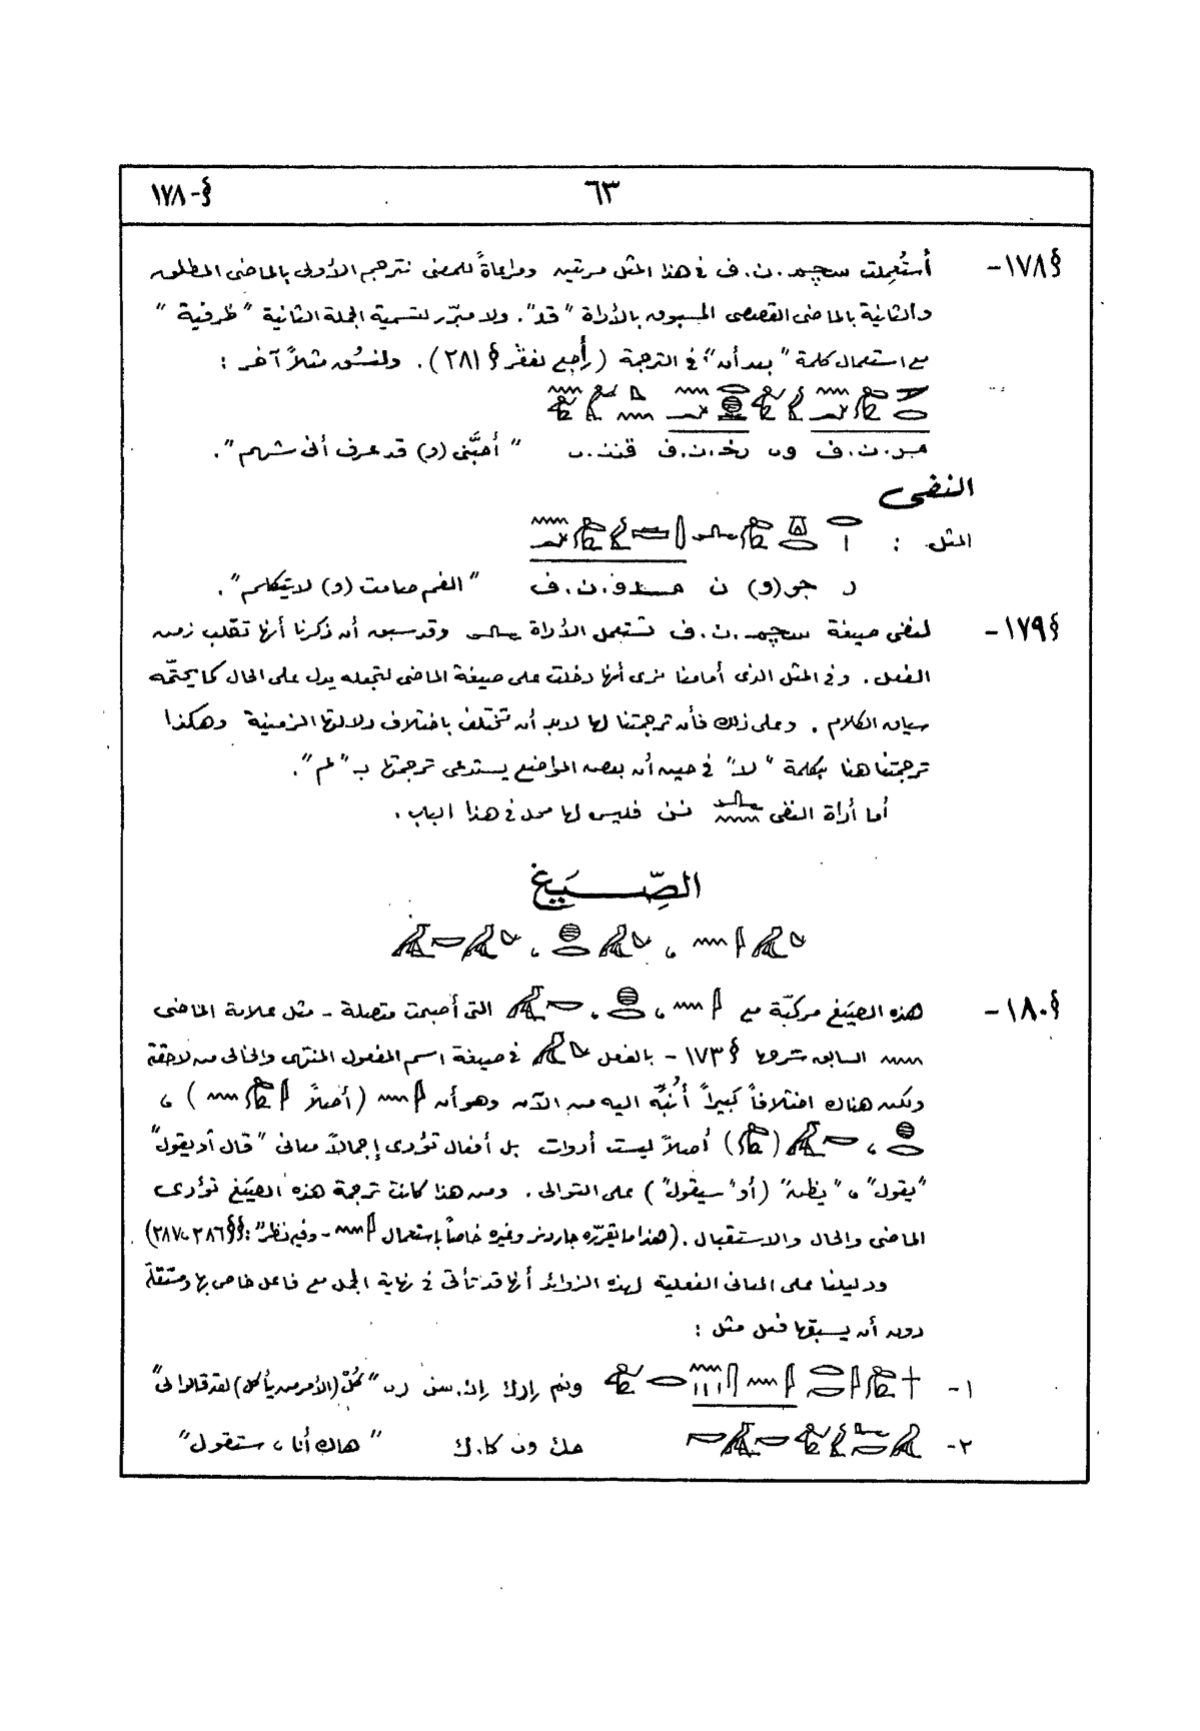 §-١٧٨
٦٣
§١٧٨- أستُعملت سچم.ن.ف فى هذا المثل مرتين ومراعاةً للمعنى نترجم الأولى بالماضى المطلق
والثانية بالماضى القصصى المسبوق بالأداة "قد". ولا مبرّر لتسمية الجملة الثانية "ظرفية"
مع استعمال كلمة "بعد أن" فى الترجمة (راجع لفقر § ٢٨١). ولنسُق مثلاً آخر :
مر.ن.ف رخ.ن.ف "أحبَّنى (و) قد عرف أنى شهم".
النفى
المثل :
ر جر(و) ن مدو.ن.ف "الفم صامت (و) لا يتكلم".
§١٧٩- لنفى صيغة سچم.ن.ف تستعمل الأداة وقد سبق أن ذكرنا أنها تقلب زمن
الفعل. وفى المثل الذى أمامنا نرى أنها دخلت على صيغة الماضى لتجعله يدل على الحال كما يحتّمه
سياق الكلام. وعلى ذلك فأن ترجمتنا لها لابد أن تختلف باختلاف دلالتها الزمنية وهكذا
ترجمتنا هنا بكلمة "لا" فى حين أن بعض المواضع يستدعى ترجمتها بـ "لم".
أما أداة النفى نن فليس لها محل فى هذا الباب.
الصِّيَغ
§١٨٠- هذه الصيَغ مركبّة مع التى أصبحت متصلة - مثل علامة الماضى
السابق شرحها § ١٧٣ - بالفعل فى صيغة اسم المفعول المنتهى والخالى من لاحقة
ولكن هناك اختلافاً كبيراً أُنبِّه اليه من الآن وهو أن (أصلاً )،
( ) أصلاً ليست أدوات بل أفعال تؤدى إجمالاً معانى "قال أو يقول"
"يقول"، "يظن" (أو "سيقول") على التوالى. ومن هذا كانت ترجمة هذه الصيَغ تؤدى
الماضى والحال والاستقبال. (هذا ما يقرّره جاردنر وغيره خاصاً بإستعمال - وفيه نظر: §§ ٢٨٦، ٢٨٧).
ودليلنا على المعانى الفعلية لهذه الزوائد أنها قد تأتى فى نهاية الجمل مع فاعل خاص بها ومستقلة
دون أن يسبقها فعل مثل :
١- ونم إرك إن.سن "كُلْ (الأمر من يأكل) لقد قالوا لى"
٢- مك وى كا.ك "هاك أنا، ستقول"